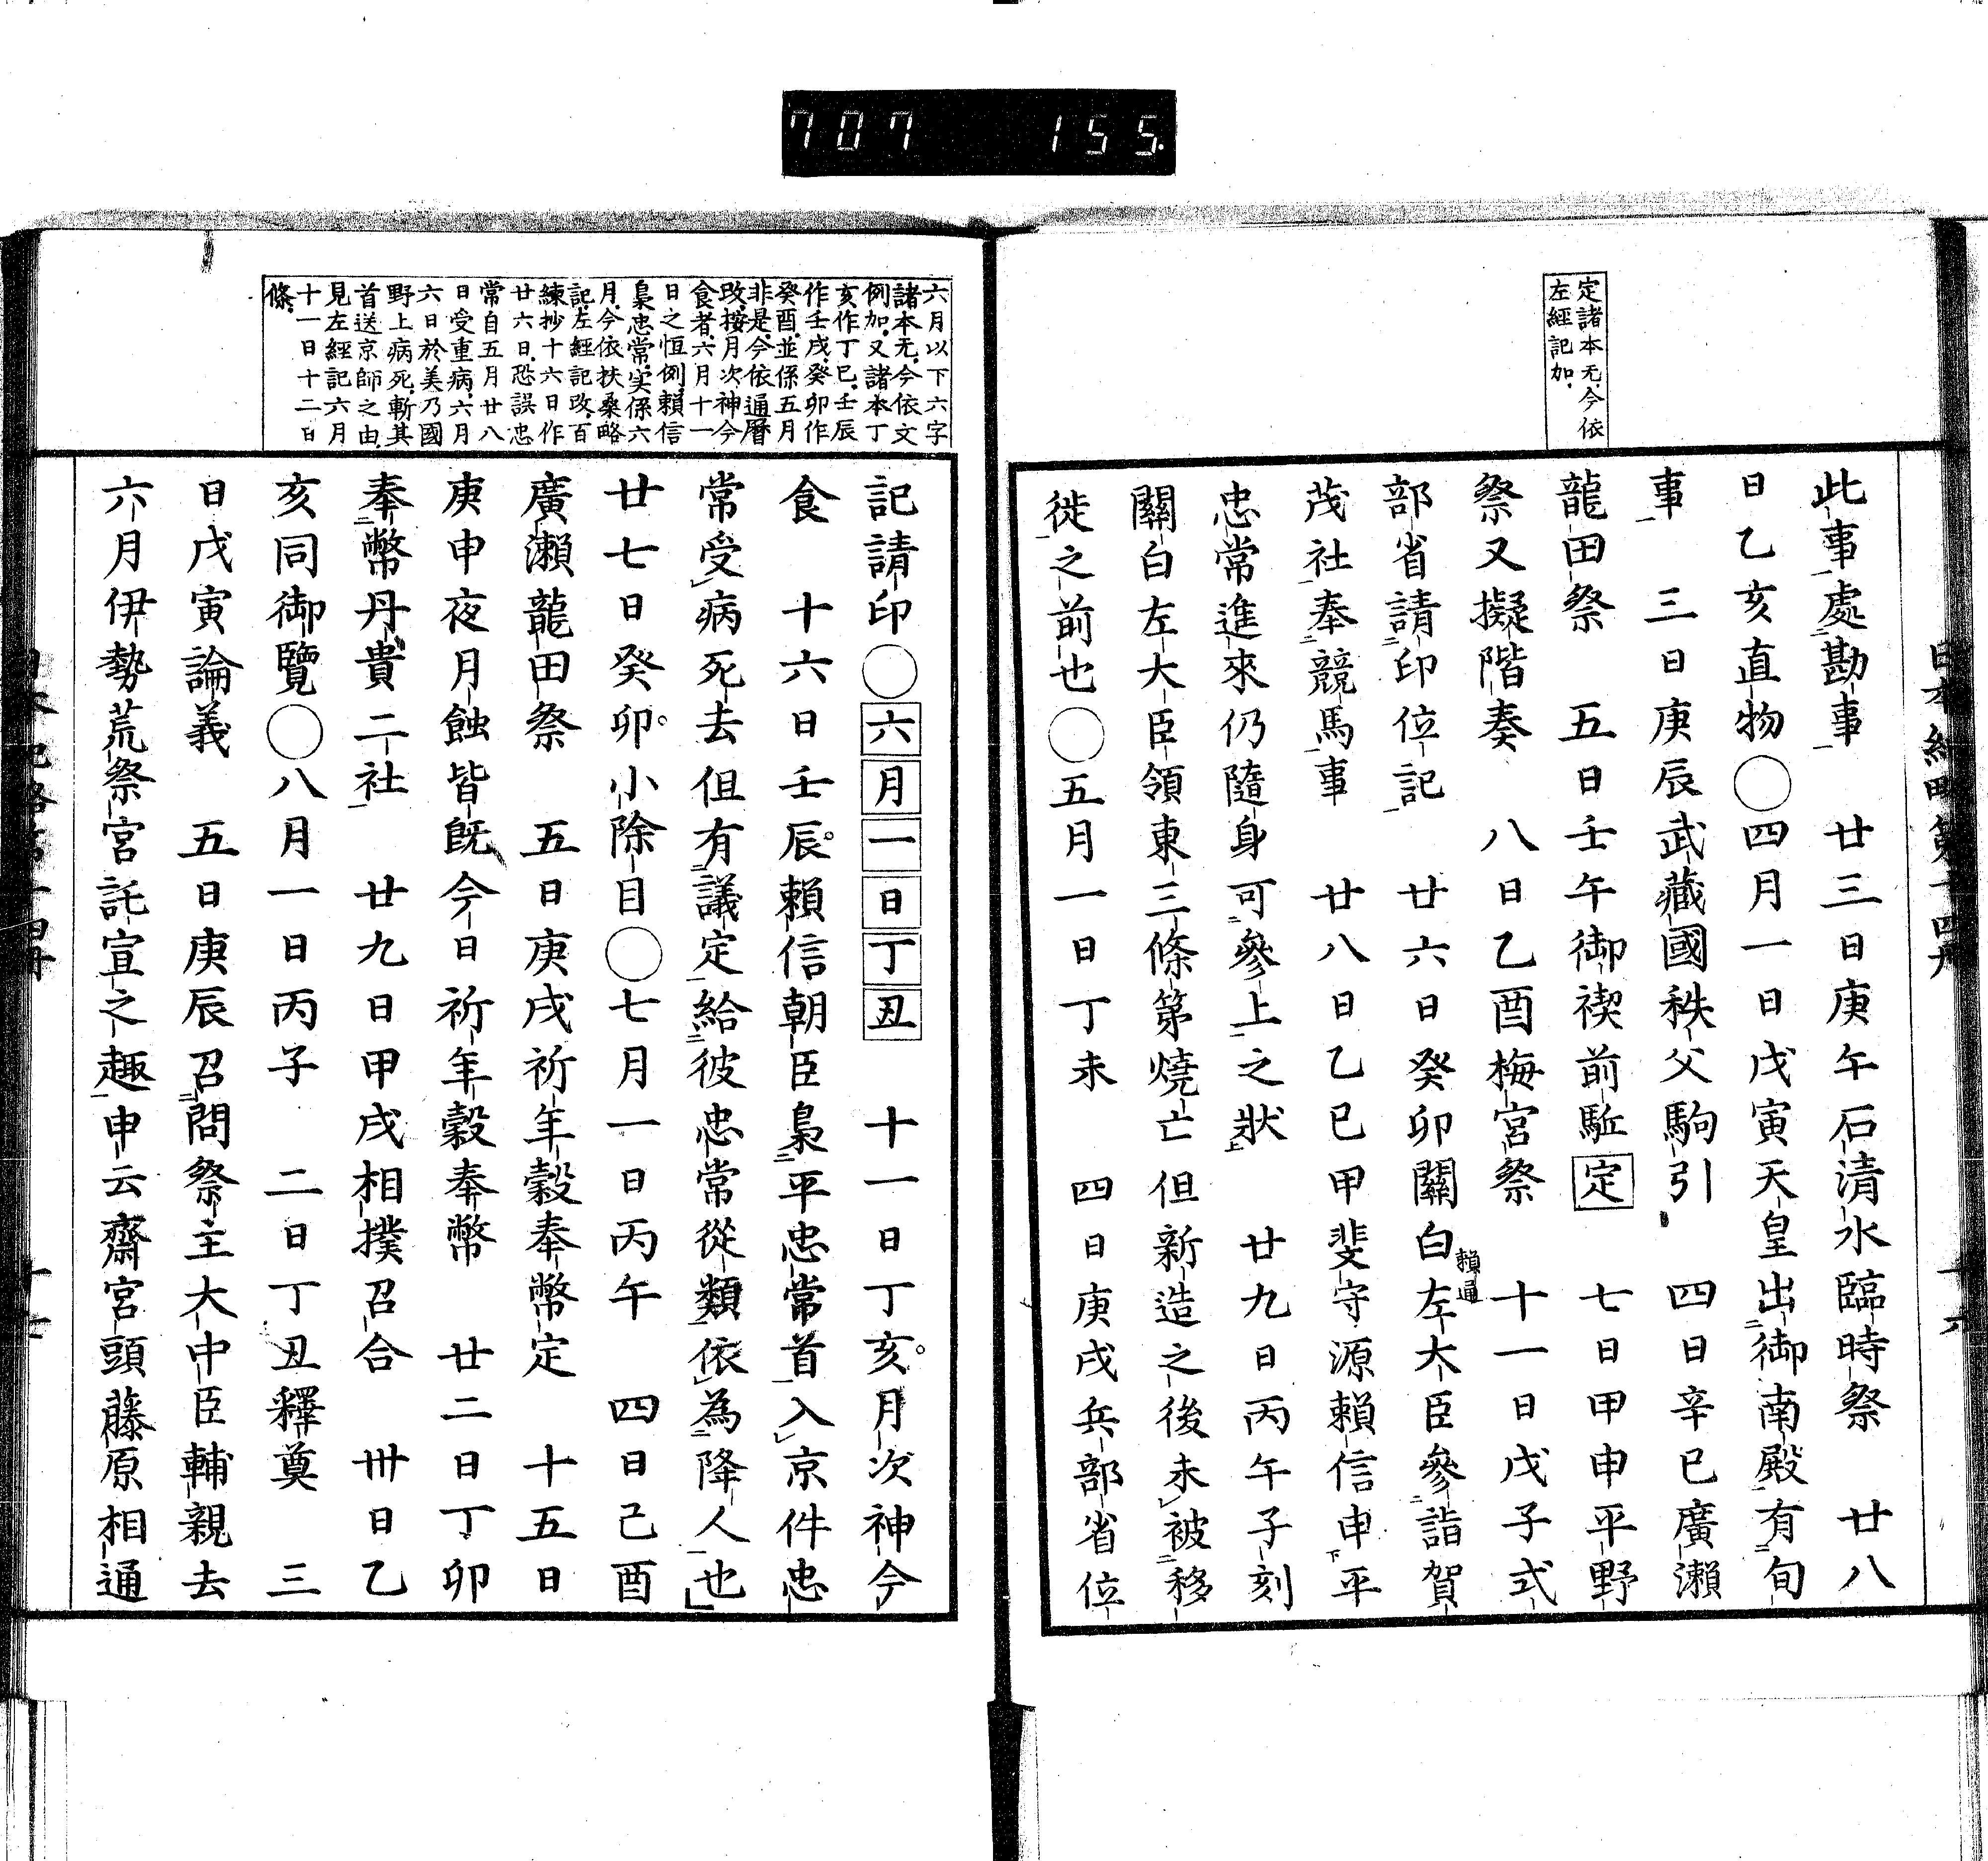 707 155.
定諸本无、今依
左經記加、
此事處勘事　廿三日庚午石清水臨時祭　廿八
日乙亥直物○四月一日戊寅天皇出御南殿有旬
事　三日庚辰武藏國秩父駒引　四日辛巳廣瀬
龍田祭　五日壬午御禊前駈定　七日甲申平野
祭又擬階奏　八日乙酉梅宮祭　十一日戊子式
部省請印位記　廿六日癸卯關白賴通左大臣參詣賀
茂社奉競馬事　廿八日乙巳甲斐守源賴信申平
忠常進來仍隨身可參上之狀　廿九日丙午子刻
關白左大臣領東三條第燒亡但新造之後未被移
徙之前也○五月一日丁未　四日庚戌兵部省位
六月以下六字
諸本无、今依文
例加、又諸本丁
亥作丁巳、壬辰
作壬戌、癸卯作
癸酉、並係五月
非是、今依通曆
改、按月次神今
食者、六月十一
日之恒例、賴信
梟忠常、実係六
月、今依扶桑略
記左經記改、百
練抄十六日作
廿六日、恐誤忠
常自五月廿八
日受重病、六月
六日於美乃國
野上病死、斬其
首送京師之由、
見左經記六月
十一日十二日
條、
記請印○六月一日丁丑　十一日丁亥月次神今
食　十六日壬辰賴信朝臣梟平忠常首入京件忠
常受病死去但有議定給彼忠常從類依為降人也
廿七日癸卯小除目○七月一日丙午　四日己酉
廣瀬龍田祭　五日庚戌祈年穀奉幣定　十五日
庚申夜月蝕皆既今日祈年穀奉幣　廿二日丁卯
奉幣丹貴二社　廿九日甲戌相撲召合　卅日乙
亥同御覽○八月一日丙子　二日丁丑釋奠　三
日戊寅論義　五日庚辰召問祭主大中臣輔親去
六月伊勢荒祭宮託宣之趣申云齋宮頭藤原相通